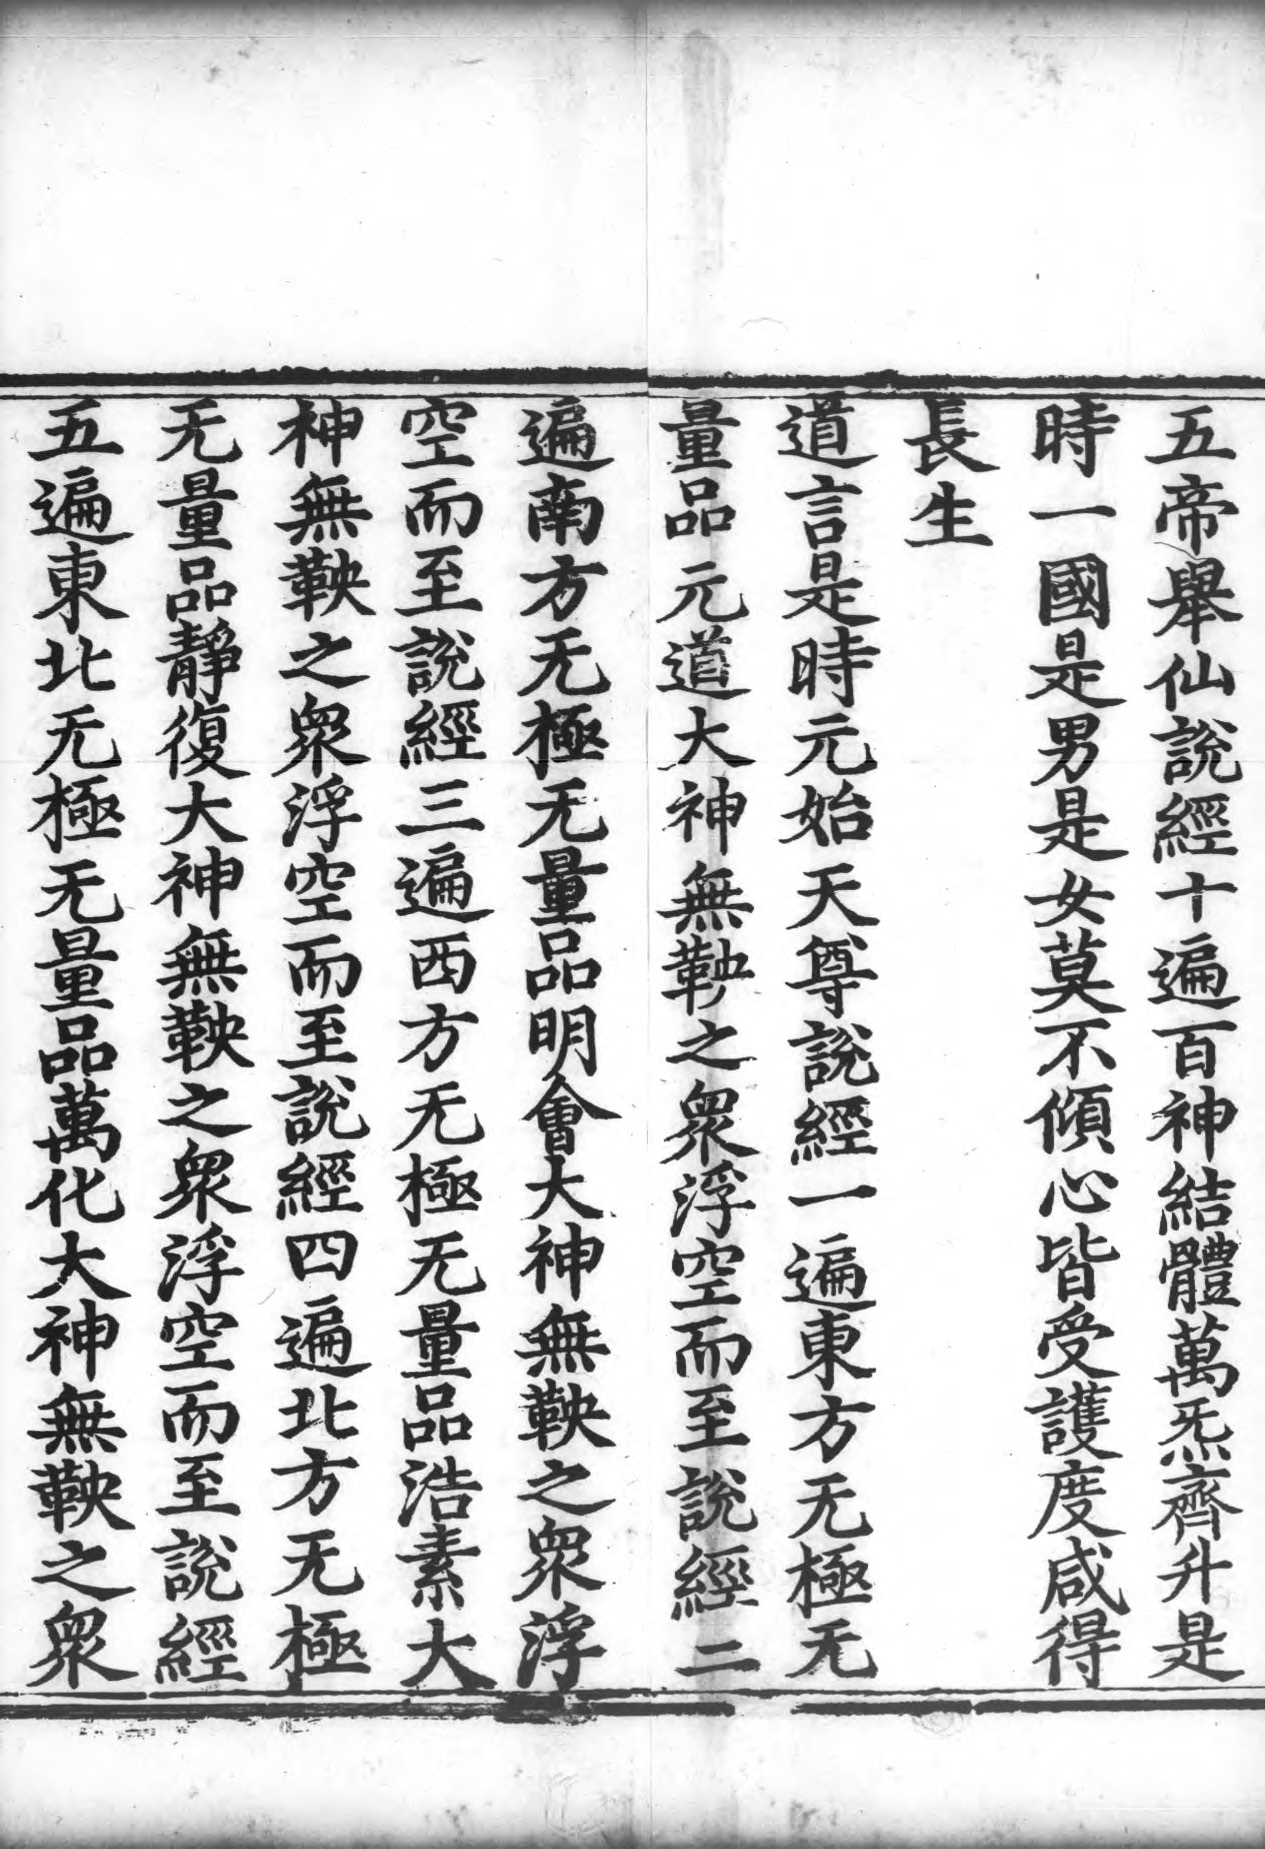 五帝舉仙說經十遍百神結體萬炁齊升是
時一國是男是女莫不傾心皆受護度咸得
長生
道言是時元始天尊說經一遍東方无極无
量品元道大神無鞅之衆浮空而至說經二
遍南方无極无量品明會大神無鞅之衆浮
空而至說經三遍西方无極无量品浩素大
神無鞅之衆浮空而至說經四遍北方无極
无量品靜復大神無鞅之衆浮空而至說經
五遍東北无極无量品萬化大神無鞅之衆